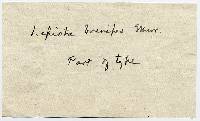 Lepiota brevipes Murr.
Part of type